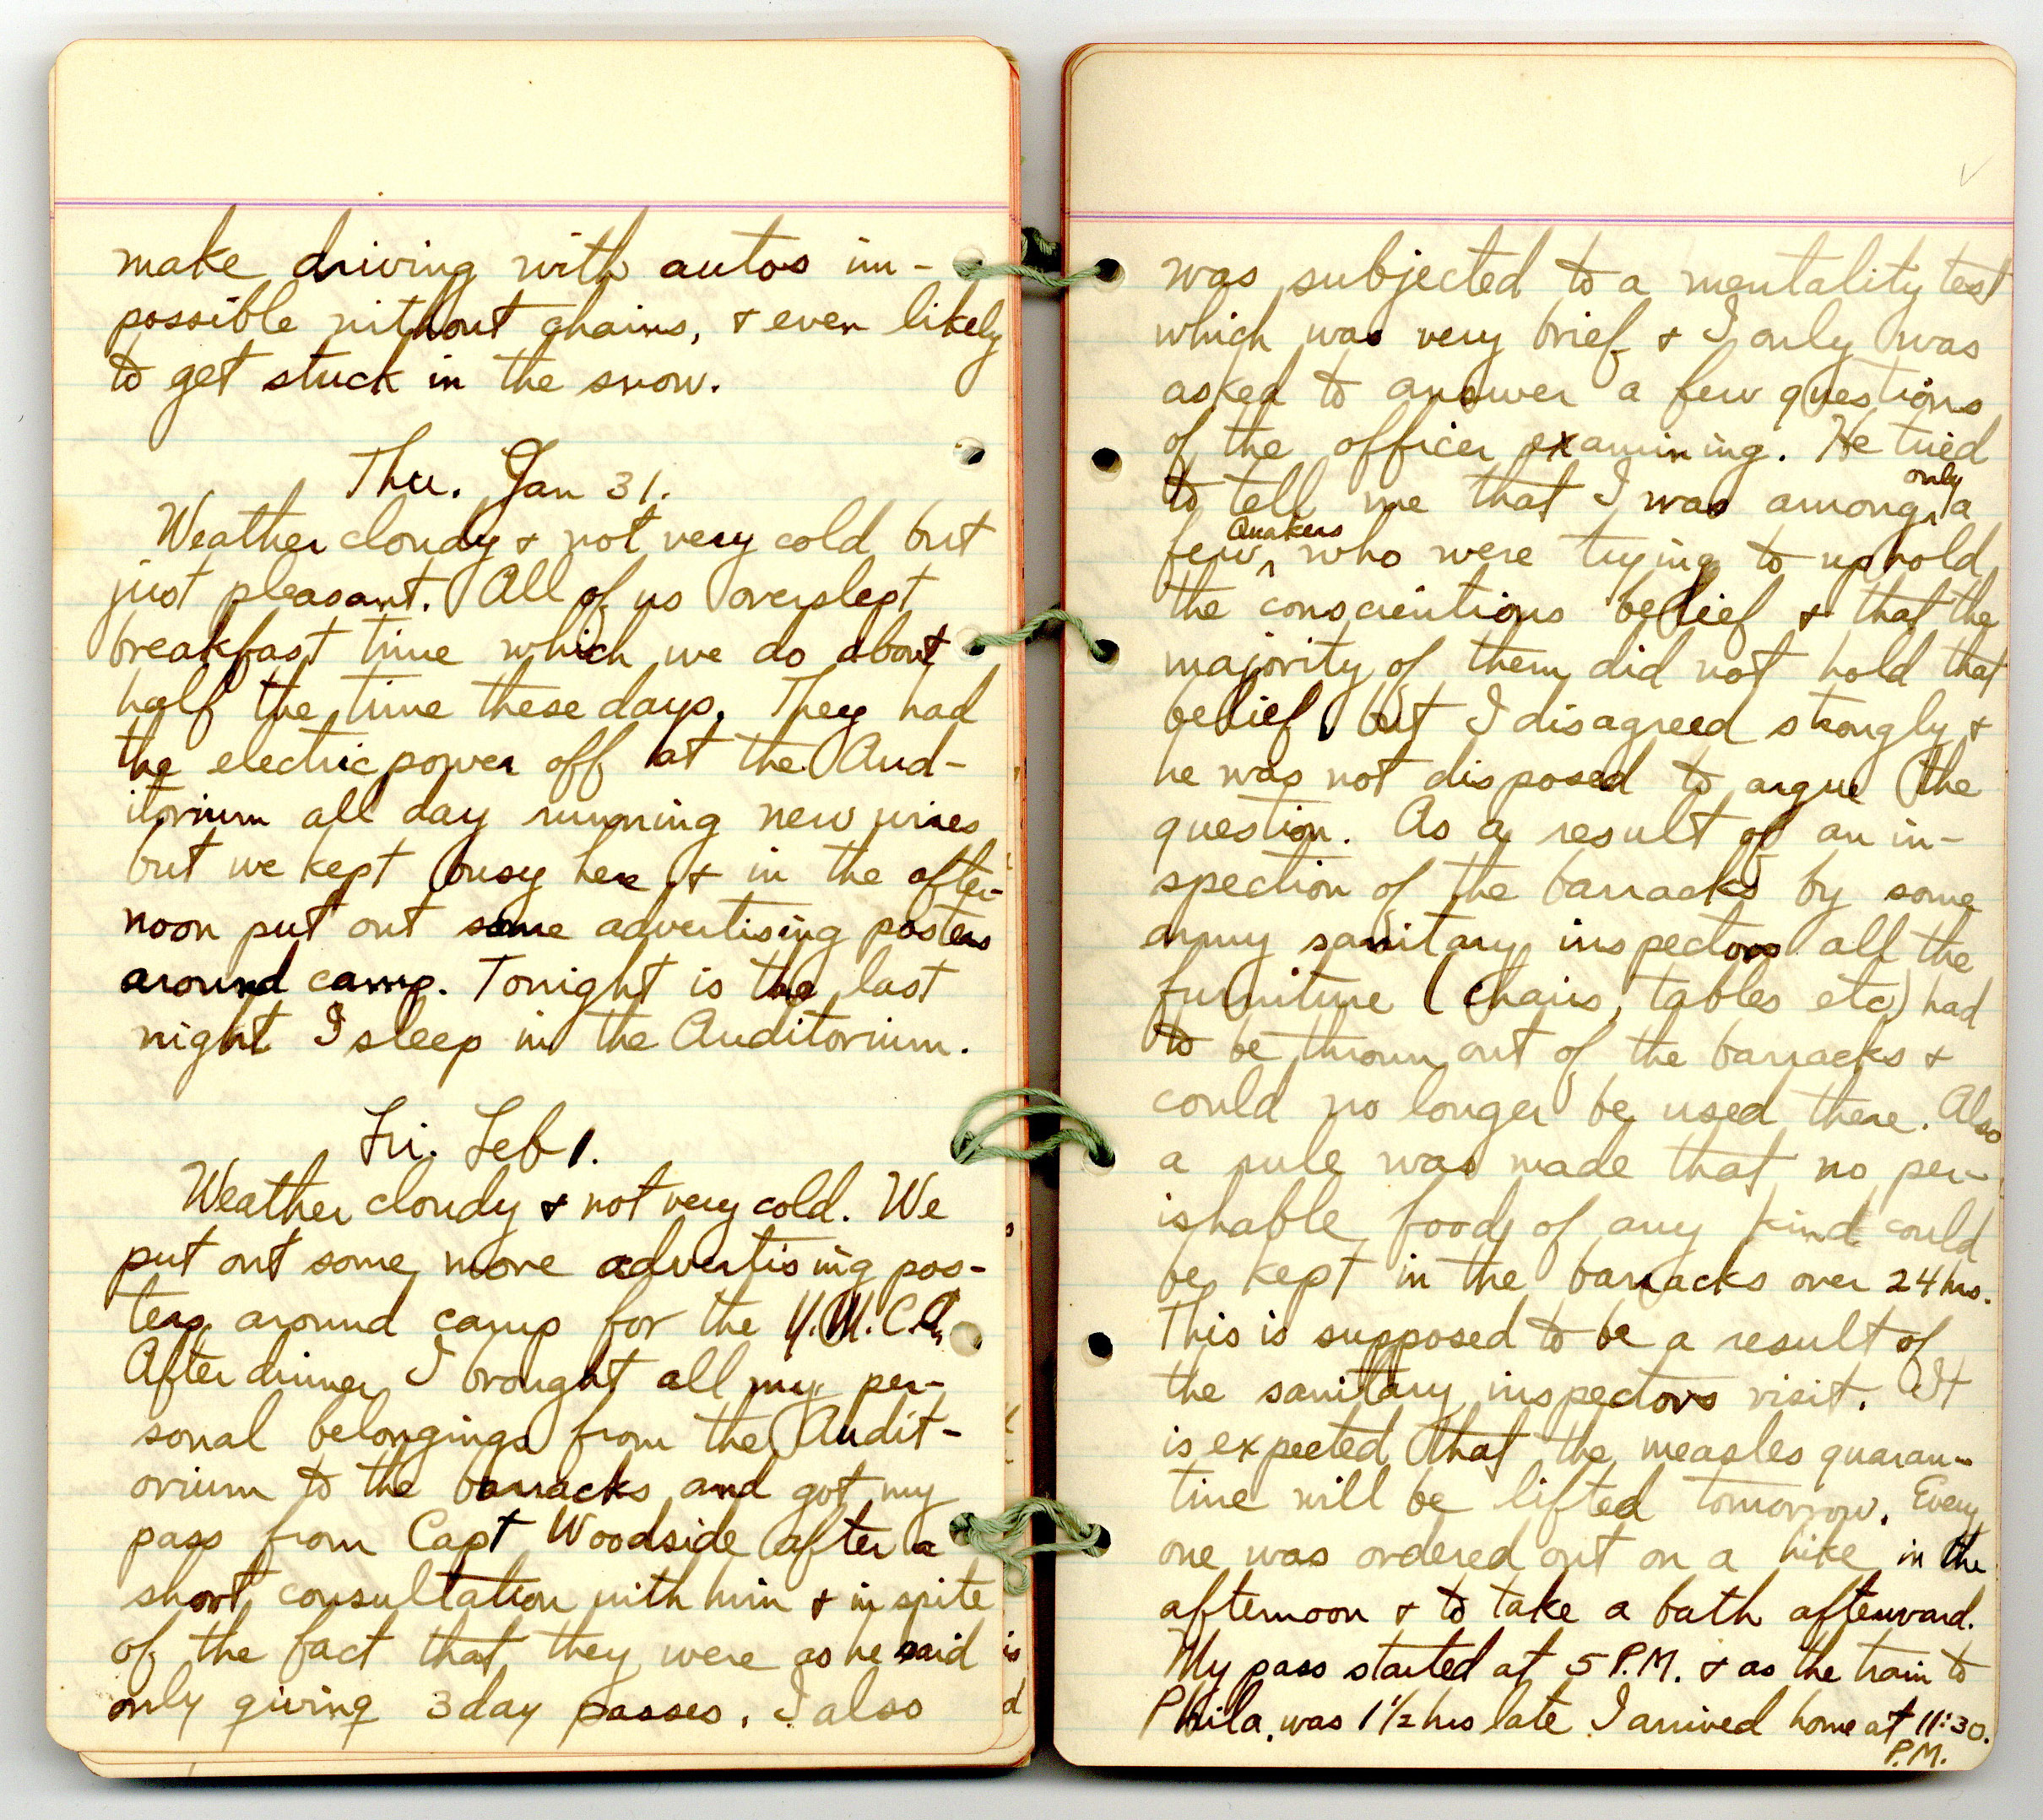 make driving with autos im-
possible without chains, + even likely
to get stuck in the snow.
Thu. Jan 31.
Weather cloudy + not very cold but
just pleasant. All of us overslept
breakfast time which we do about
half the time these days. They had
the electric power off at the Aud-
itorium all day running new wires
but we kept busy here + in the after-
noon put out some advertising posters
around camp. Tonight is the last
night I sleep in the Auditorium.
Fri. Feb 1.
Weather cloudy + not very cold. We
put out some more advertising pos-
ters around camp for the Y.M.C.A.
After dinner I brought all my per-
sonal belongings from the Audit-
orium to the barracks and got my
pass from Capt Woodside after a
short consultation with him + in spite
of the fact that they were as he said
only giving 3 day passes. I also
was subjected to a mentality test
which was very brief + I only was
asked to answer a few questions
of the officer examining. He tried
to tell me that I was among only a
few Quakers, who were trying to uphold
the conscientious belief + that the
majority of them did not hold that
belief, but I disagreed strongly +
he was not disposed to argue the
question. As a result of an in-
spection of the barracks by some
army sanitary inspectors all the
furniture (chairs, tables etc) had
to be thrown out of the barracks +
could no longer be used there. Also
a rule was made that no per-
ishable food of any kind could
be kept in the barracks over 24 hrs.
This is supposed to be a result of
the sanitary inspectors visit. It
is expected that the measles quaran-
tine will be lifted tomorrow. Every
one was ordered out on a hike in the
afternoon + to take a bath afterward.
My pass started at 5 P.M. + as the train to
Phila. was 1 1/2 hrs late I arrived home at 11:30.
P.M.